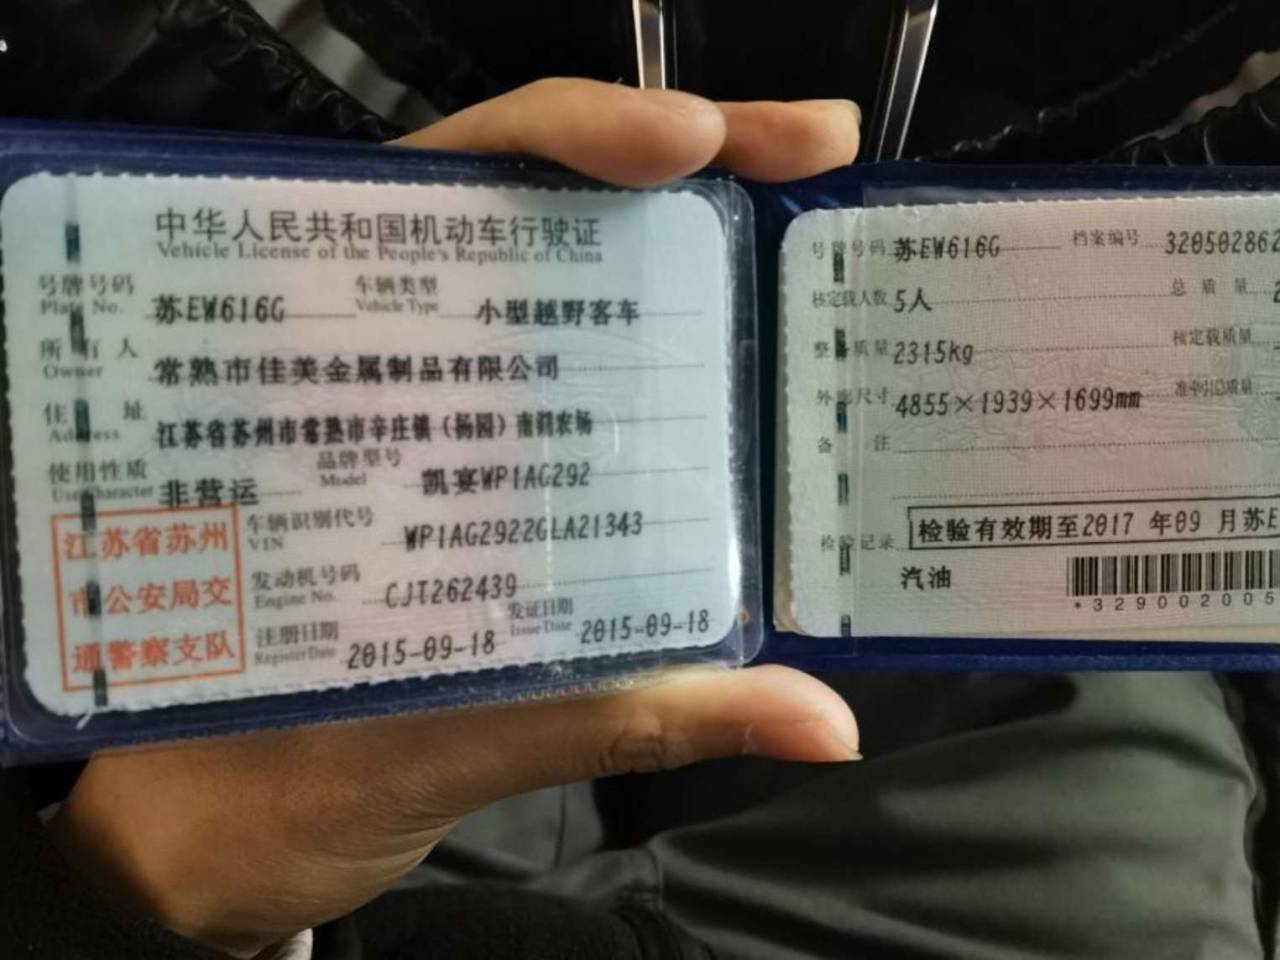 中华人民共和国机动车行驶证
Vehicle License of the People's Republic of China
号牌号码 苏EW616G 车辆类型 小型越野客车
Plate No. Vehicle Type
所有人 常熟市佳美金属制品有限公司
Owner
住址 江苏省苏州市常熟市辛庄镇（杨园）南湖农场
Address
使用性质 非营运 品牌型号 凯宴WP1AG292
Use Character Model
车辆识别代号 WP1AG2922GLA21343
VIN
发动机号码 CJT262439
Engine No.
注册日期 2015-09-18 发证日期 2015-09-18
Register Date Issue Date
江苏省苏州
市公安局交
通警察支队
号牌号码 苏EW616G 档案编号 320502862
核定载人数 5人 总质量
整备质量 2315kg 核定载质量
外廓尺寸 4855×1939×1699mm 准牵引总质量
备注
检验记录 检验有效期至2017 年09 月苏E
汽油
*329002005